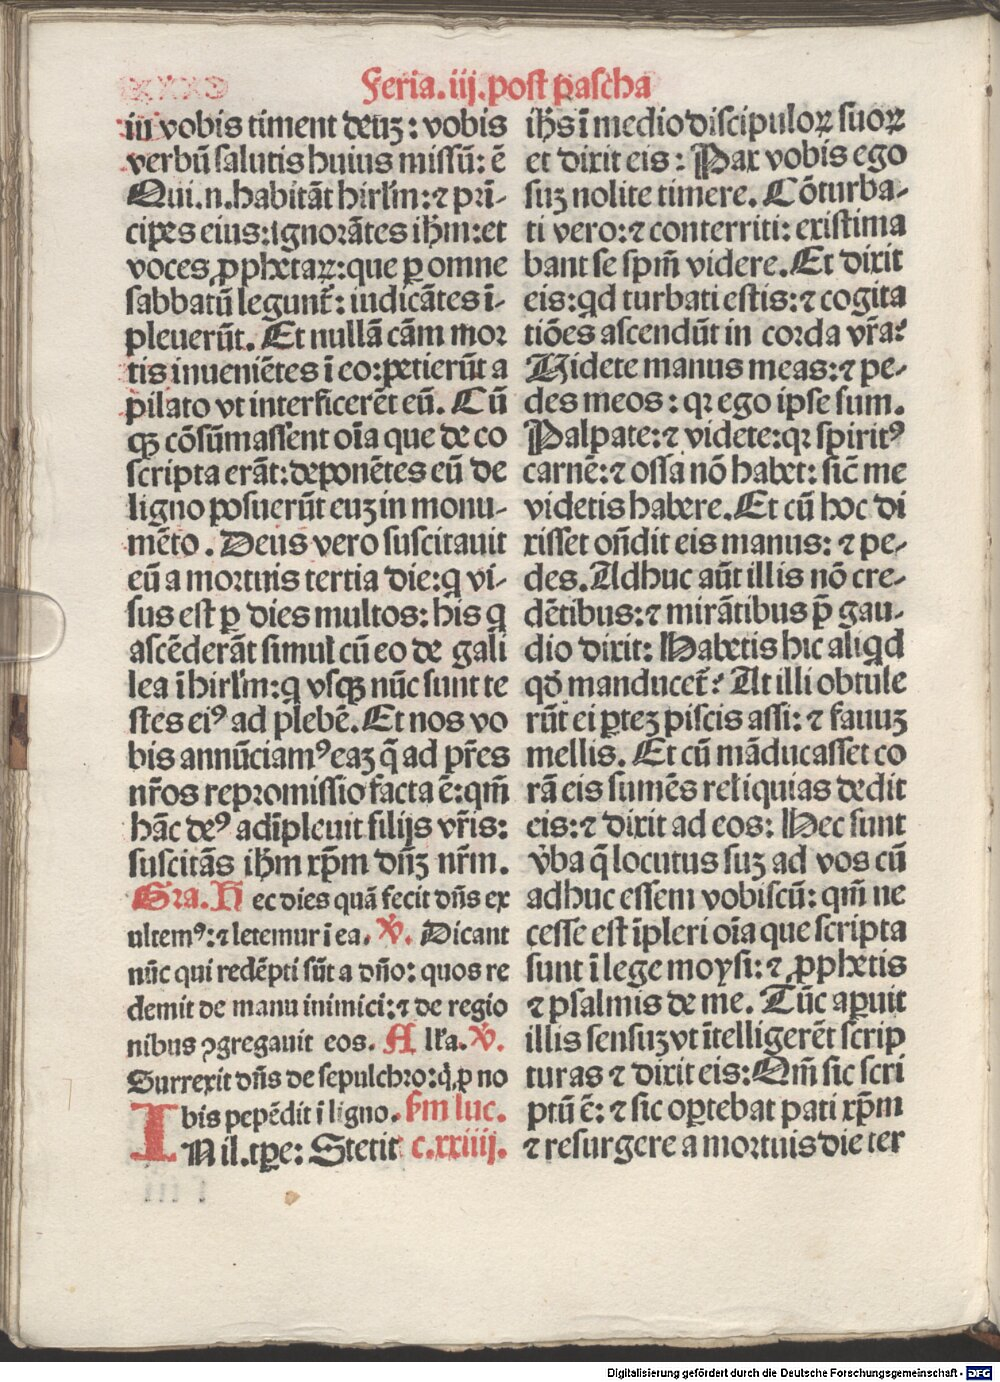 Feria.iij.post pascha
in vobis timent deuʒ: vobis
verbū salutis huius missū: ē
Qui.n.habitāt hirl'm:⁊ pri̅-
cipes eius:ignorātes ih̄m:et
voces ꝓphetaꝝ:que ꝑ omne
sabbatū legunt᷑: iudicātes ī-
pleuerūt. Et nullā cām mor
tis inueniētes ī eo:petierūt a
pilato vt interficerēt eū. Cū
qꝫ cōsūmassent oīa que de eo
scripta erāt:deponētes eū de
ligno posuerūt euʒ in monu-
mēto. Deus vero suscitauit
eū a mortuis tertia die:q̇ vi-
sus est ꝑ dies multos: his q̇
ascēderāt simul cū eo de gali
lea ī hirl'm:q̇ vsqꝫ nūc sunt te
stes eiꝰ ad plebē. Et nos vo
bis annūciamꝰ eaʒ q̄ ad pr̄es
nr̄os repromissio facta ē:qm̄
hāc deꝰ adīpleuit filijs vr̄is:
suscitās ih̄m xp̄m dn̄ʒ nr̄m.
Gra. Hec dies quā fecit dn̄s ex
ultemꝰ:⁊ letemur ī ea. ℣. Dicant
nūc qui redēpti sūt a dn̄o: quos re
demit de manu inimici:⁊ de regio
nibus ꝯgregauit eos. Alla. ℣.
Surrexit dn̄s de sepulchro:q̇ ꝓ no
bis pepēdit ī ligno. Sm̄ luc.
INil.tꝑe: Stetit c.xxiiij.
ih̄s ī medio discipuloꝝ suoꝝ
et dixit eis: Pax vobis ego
suʒ nolite timere. Cōturba-
ti vero:⁊ conterriti: existima
bant se spm̄ videre. Et dixit
eis:qd turbati estis:⁊ cogita
tiōes ascendūt in corda vr̄a?
Videte manus meas:⁊ pe-
des meos: qꝛ ego ipse sum.
Palpate:⁊ videte:qꝛ spiritꝰ
carnē:⁊ ossa nō habet: sic̄ me
videtis habere. Et cū hoc di
xisset on̄dit eis manus: ⁊ pe-
des. Adhuc aūt illis nō cre-
dētibus:⁊ mirātibus p̄ gau-
dio dixit: Habetis hic aliqd
qd̄ manducet᷑? At illi obtule
rūt ei ꝑteʒ piscis assi: ⁊ fauuʒ
mellis. Et cū māducasset co
rā eis sumēs reliquias dedit
eis:⁊ dixit ad eos: Hec sunt
v̓ba q̄ locutus suʒ ad vos cū
adhuc essem vobiscū: qm̄ ne
cesse est īpleri oīa que scripta
sunt ī lege moysi:⁊ ꝓphetis
⁊ psalmis de me. Tūc aperuit
illis sensuʒ vt ītelligerēt scrip
turas ⁊ dixit eis:Qm̄ sic scri
ptū ē: ⁊ sic oꝑtebat pati xp̄m
⁊ resurgere a mortuis die ter
Digitalisierung gefördert durch die Deutsche Forschungsgemeinschaft - DFG